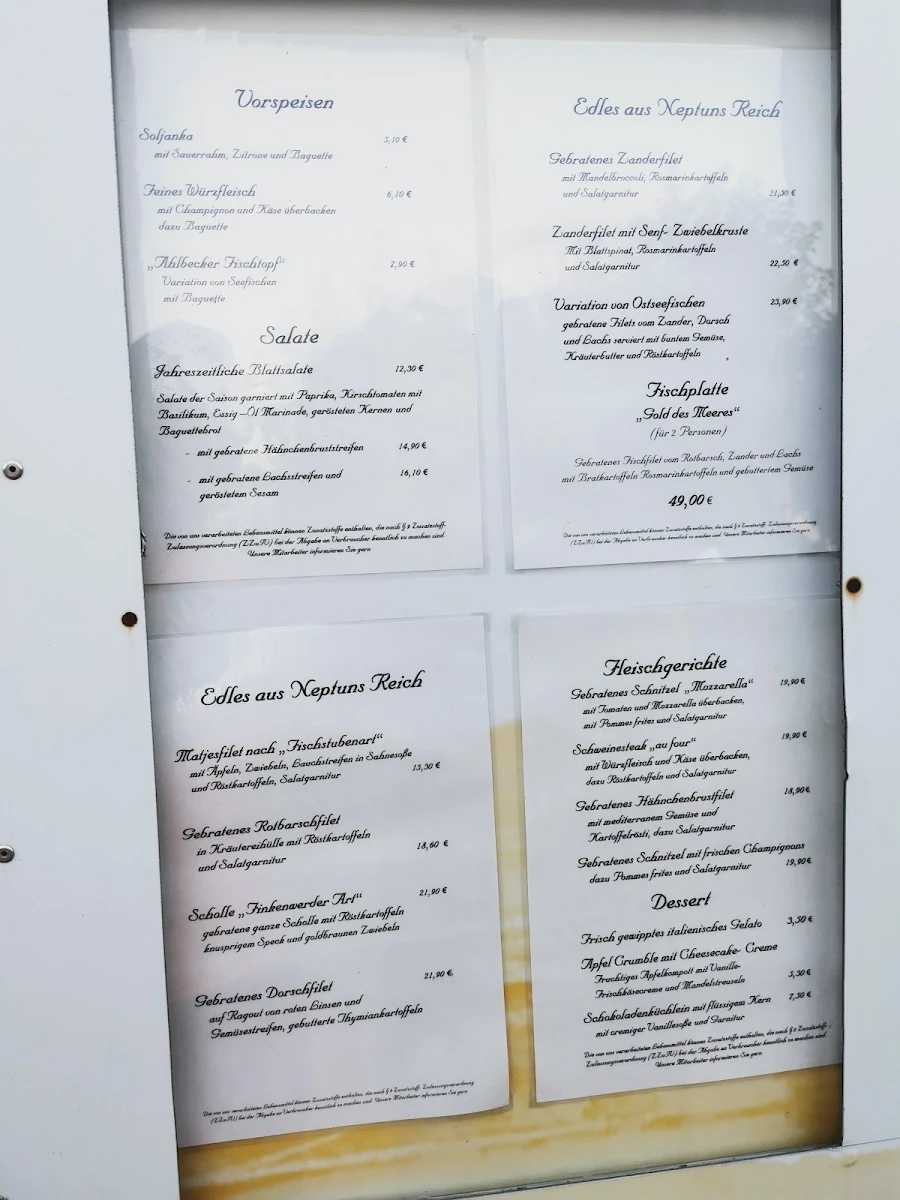 Vorspeisen
Soljanka 5,10 €
mit Sauerrahm, Zitrone und Baguette
Feines Würzfleisch 6,10 €
mit Champignon und Käse überbacken
dazu Baguette
„Ahlbecker Fischtopf“ 7,90 €
Variation von Seefischen
mit Baguette
Salate
Jahreszeitliche Blattsalate 12,30 €
Salate der Saison garniert mit Paprika, Kirschtomaten mit
Basilikum, Essig –Öl Marinade, gerösteten Kernen und
Baguettebrot
- mit gebratene Hähnchenbruststreifen 14,90 €
- mit gebratene Lachsstreifen und 16,10 €
geröstetem Sesam
Die von uns verarbeiteten Lebensmittel können Zusatzstoffe enthalten, die nach § 9 Zusatzstoff-
Zulassungsverordnung (ZZulV) bei der Abgabe an Verbraucher kenntlich zu machen sind.
Unsere Mitarbeiter informieren Sie gern
Edles aus Neptuns Reich
Gebratenes Zanderfilet
mit Mandelbroccoli, Rosmarinkartoffeln
und Salatgarnitur 21,50 €
Zanderfilet mit Senf- Zwiebelkruste
Mit Blattspinat, Rosmarinkartoffeln
und Salatgarnitur 22,50 €
Variation von Ostseefischen 23,90 €
gebratene Filets vom Zander, Dorsch
und Lachs serviert mit buntem Gemüse,
Kräuterbutter und Röstkartoffeln
Fischplatte
„Gold des Meeres“
(für 2 Personen)
Gebratenes Fischfilet vom Rotbarsch, Zander und Lachs
mit Bratkartoffeln Rosmarinkartoffeln und gebuttertem Gemüse
49,00 €
Die von uns verarbeiteten Lebensmittel können Zusatzstoffe enthalten, die nach § 9 Zusatzstoff- Zulassungsverordnung
(ZZulV) bei der Abgabe an Verbraucher kenntlich zu machen sind. Unsere Mitarbeiter informieren Sie gern
Edles aus Neptuns Reich
Matjesfilet nach „Fischstubenart“
mit Äpfeln, Zwiebeln, Lauchstreifen in Sahnesoße
und Röstkartoffeln, Salatgarnitur 15,30 €
Gebratenes Rotbarschfilet
in Kräutereihülle mit Röstkartoffeln
und Salatgarnitur 18,60 €
Scholle „Finkenwerder Art“ 21,90 €
gebratene ganze Scholle mit Röstkartoffeln
knusprigem Speck und goldbraunen Zwiebeln
Gebratenes Dorschfilet 21,90 €
auf Ragout von roten Linsen und
Gemüsestreifen, gebutterte Thymiankartoffeln
Die von uns verarbeiteten Lebensmittel können Zusatzstoffe enthalten, die nach § 9 Zusatzstoff- Zulassungsverordnung
(ZZulV) bei der Abgabe an Verbraucher kenntlich zu machen sind. Unsere Mitarbeiter informieren Sie gern
Fleischgerichte
Gebratenes Schnitzel „Mozzarella“ 19,90 €
mit Tomaten und Mozzarella überbacken,
mit Pommes frites und Salatgarnitur
Schweinesteak „au four“ 19,90 €
mit Würzfleisch und Käse überbacken,
dazu Röstkartoffeln und Salatgarnitur
Gebratenes Hähnchenbrustfilet 18,90 €
mit mediterranem Gemüse und
Kartoffelrösti, dazu Salatgarnitur
Gebratenes Schnitzel mit frischen Champignons
dazu Pommes frites und Salatgarnitur 19,90 €
Dessert
Frisch gewipptes italienisches Gelato 3,50 €
Apfel Crumble mit Cheesecake- Creme
Fruchtiges Apfelkompott mit Vanille-
Frischkäsecreme und Mandelstreuseln 5,30 €
Schokoladenküchlein mit flüssigem Kern 7,50 €
mit cremiger Vanillesoße und Garnitur
Die von uns verarbeiteten Lebensmittel können Zusatzstoffe enthalten, die nach § 9 Zusatzstoff-
Zulassungsverordnung (ZZulV) bei der Abgabe an Verbraucher kenntlich zu machen sind.
Unsere Mitarbeiter informieren Sie gern